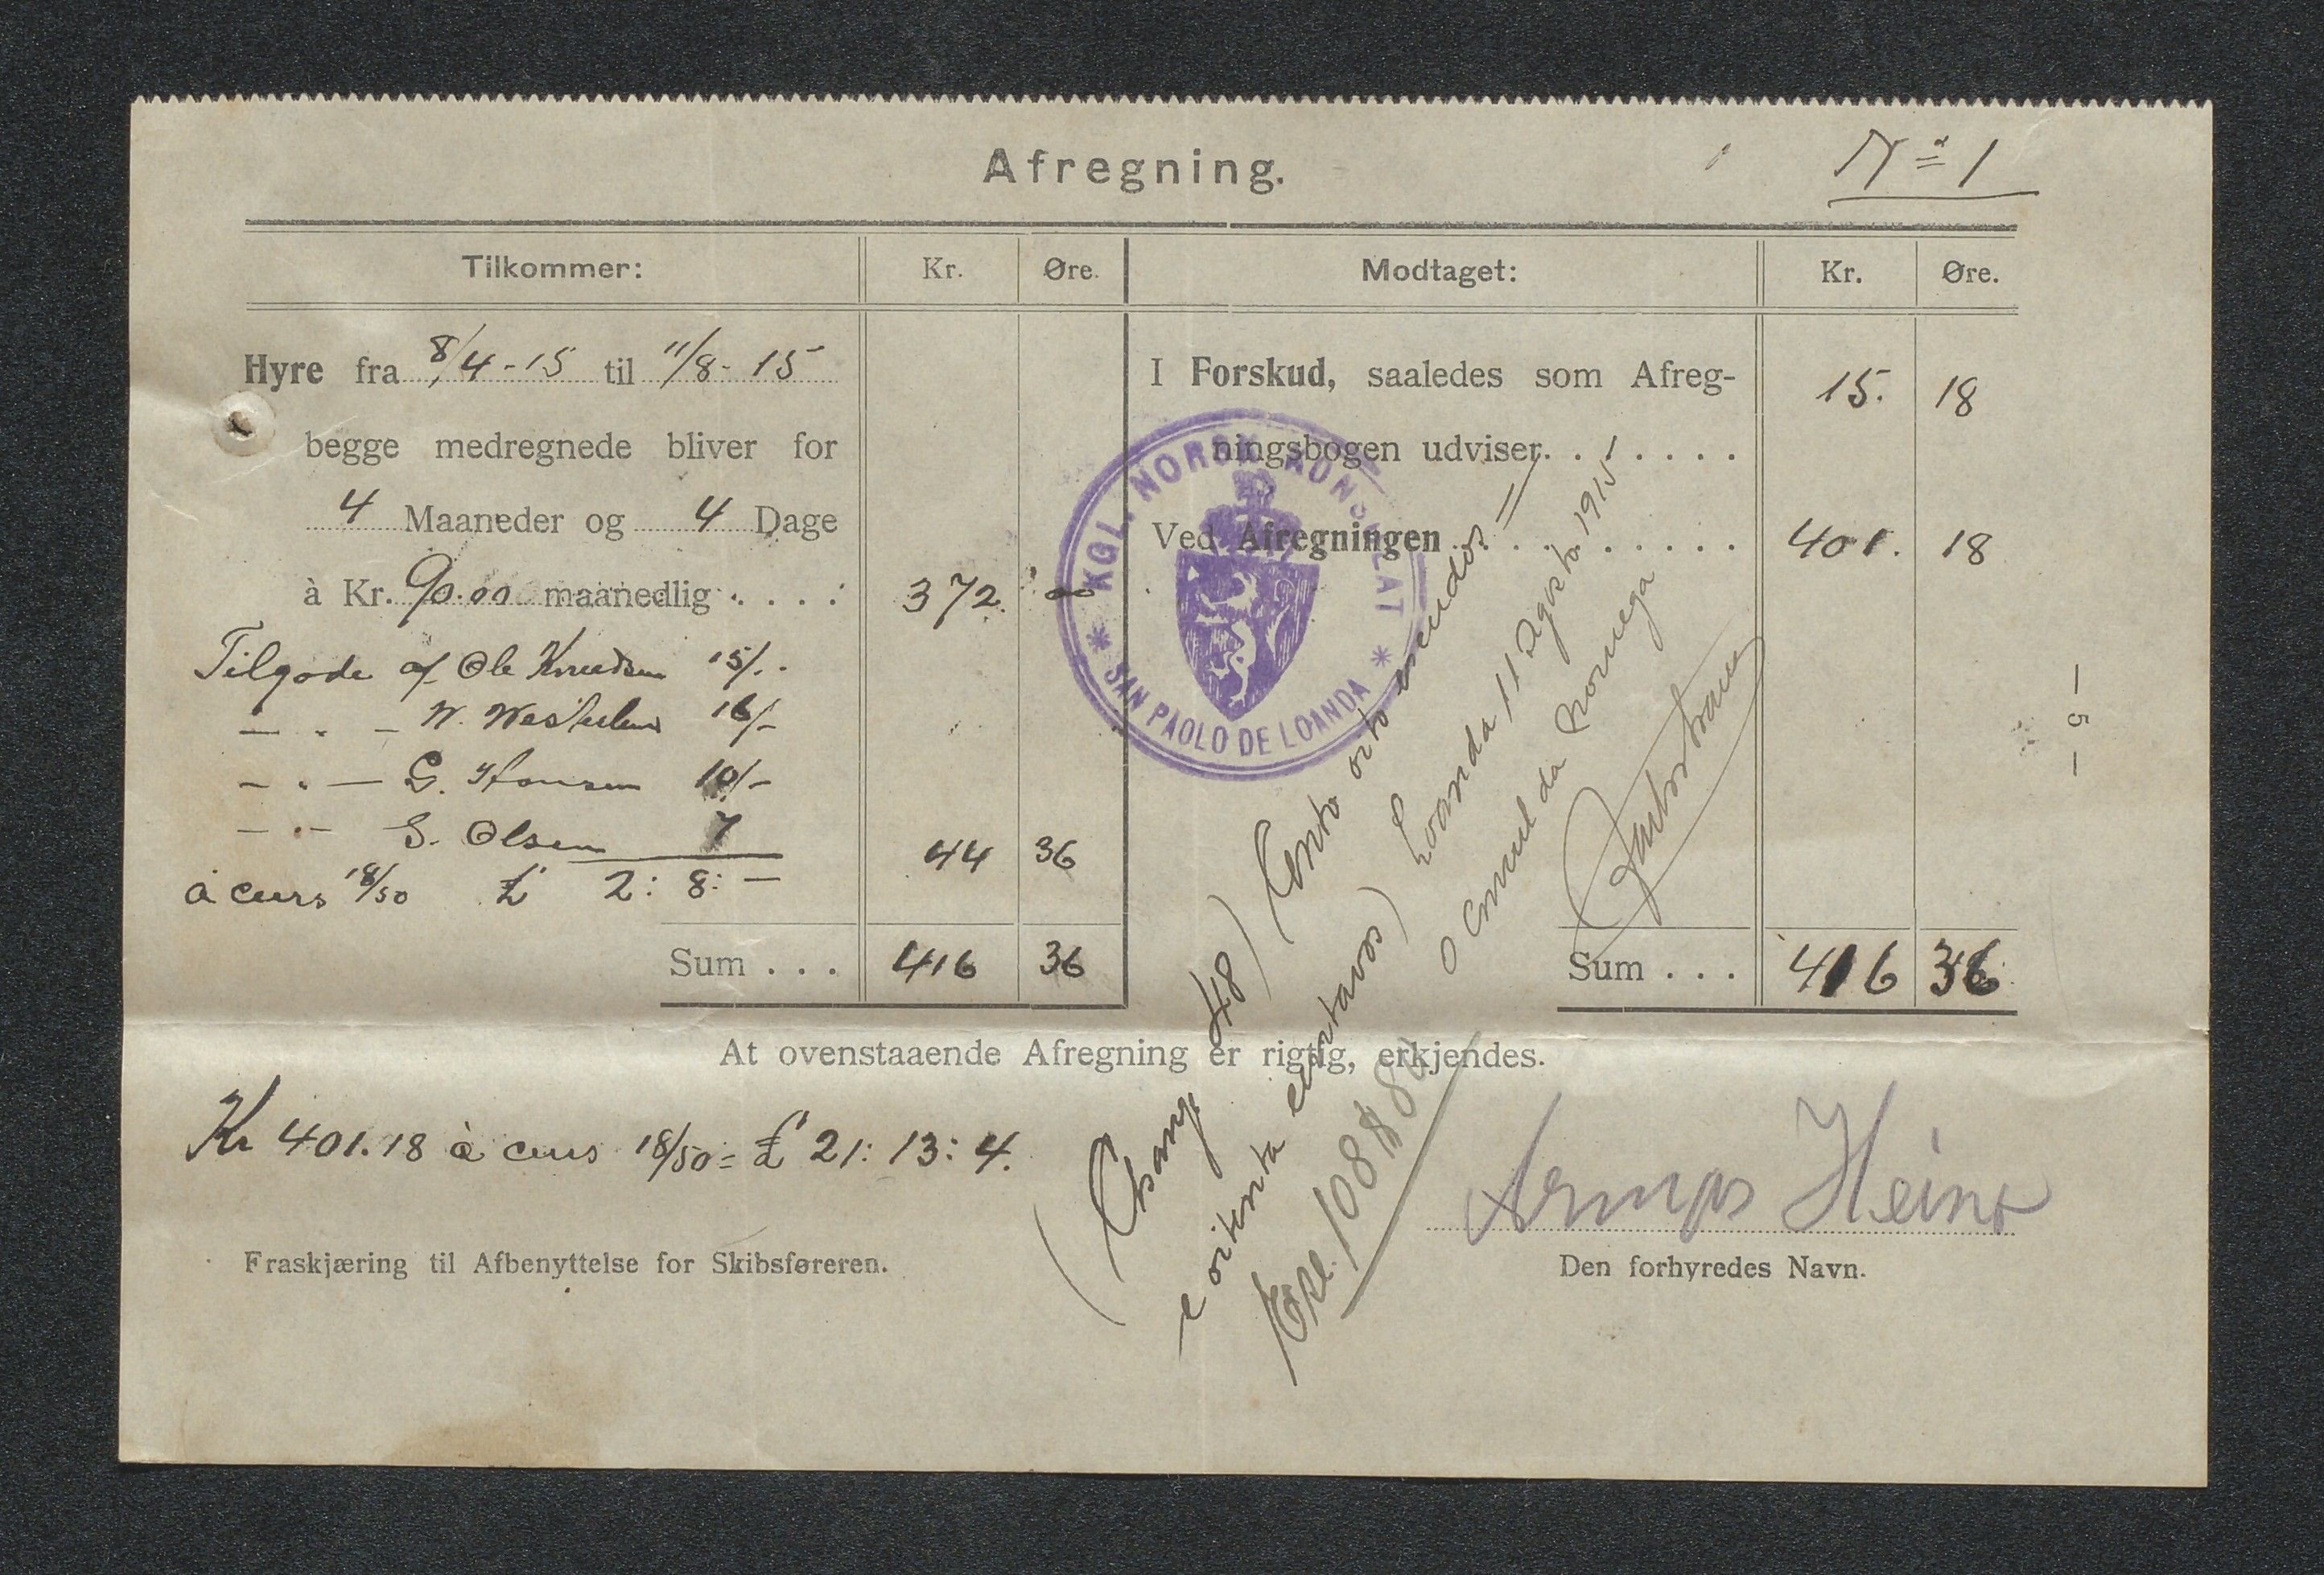 Afregning.
Nº 1
Tilkommer: Kr. Øre. Modtaget: Kr. Øre.
Hyre fra 8/4-15 til 11/8-15
begge medregnede bliver for
4 Maaneder og 4 Dage
à Kr. 90.00 maanedlig . . . . 372. 00
Tilgode af Ole Knudsen 15/-
— „ — W. Westerlund 16/-
— „ — G. Hansen 10/-
— „ — S. Olsen 7
44 36
à curs 18/50 £ 2: 8: —
Sum . . . 416 36
I Forskud, saaledes som Afreg-
ningsbogen udviser. . . . . . 15. 18
Ved Afregningen . . . . . . . 401. 18
Sum . . . 416 36
KGL. NORSK KONSULAT
* SAN PAOLO DE LOANDA *
(Change 48) (Cento oito escudos =
e oitenta centavos)
Esc. 108$80
Loanda 11 Agosto 1915
O Consul da Noruega
— 5 —
At ovenstaaende Afregning er rigtig, erkjendes.
Kr 401.18 à curs 18/50 = £ 21: 13: 4.
Heino
Fraskjæring til Afbenyttelse for Skibsføreren.
Den forhyredes Navn.